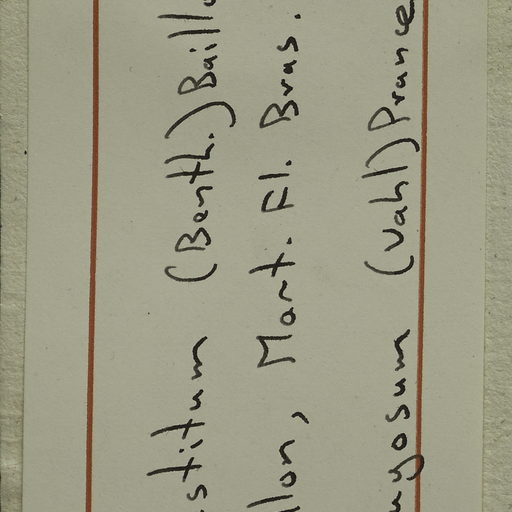 stitum (Benth.) Baillo
llon, Mart. Fl. Bras.
nyosum (Vahl) Prance